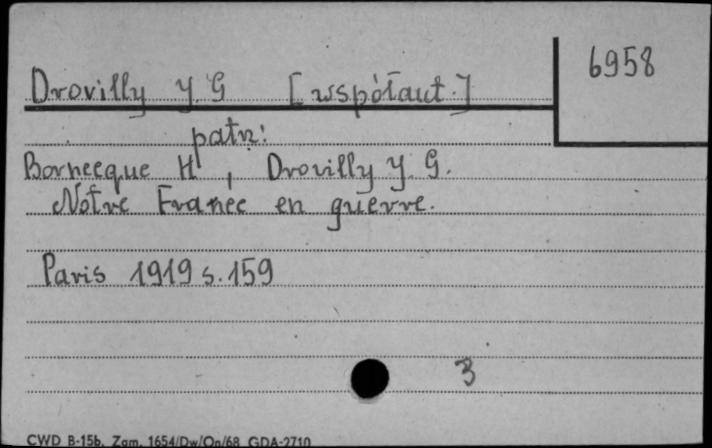 6958
Drovilly Y. G [współaut.]
patrz:
Borneeque H, Drovilly Y. G.
Notre France en guerre.
Paris 1919 s. 159
3
CWD B-15b. Zam. 1654/Dw/On/68 GDA-2710